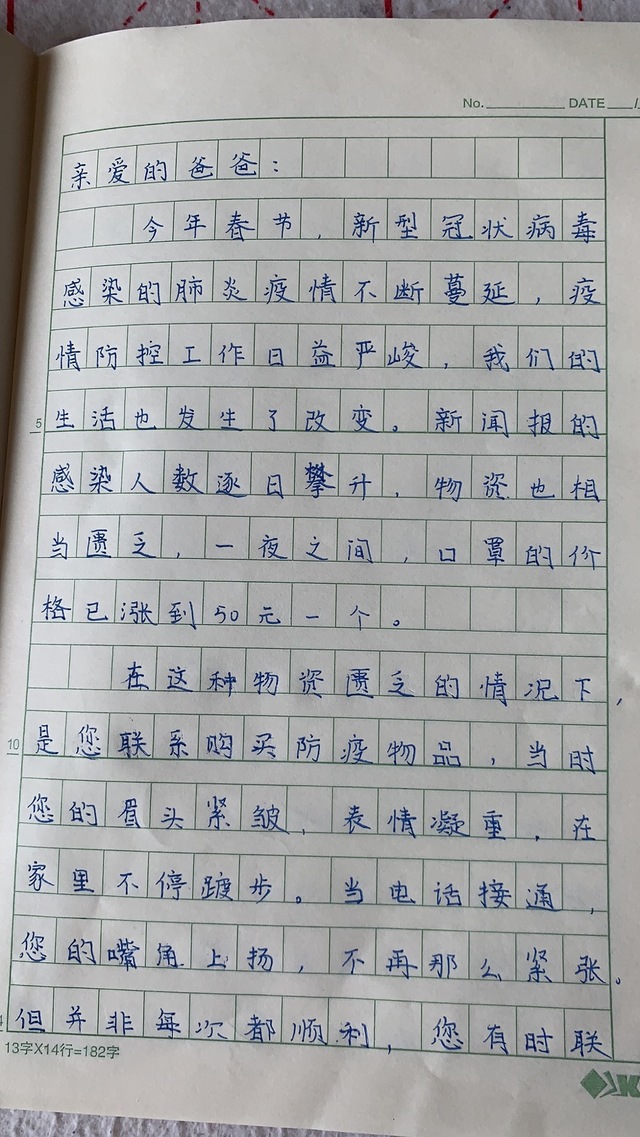 No. DATE /
亲爱的爸爸：
今年春节，新型冠状病毒
感染的肺炎疫情不断蔓延，疫
情防控工作日益严峻，我们的
5
生活也发生了改变。新闻报的
感染人数逐日攀升，物资也相
当匮乏，一夜之间，口罩的价
格已涨到50元一个。
在这种物资匮乏的情况下，
10
是您联系购买防疫物品，当时
您的眉头紧皱，表情凝重，在
家里不停踱步。当电话接通，
您的嘴角上扬，不再那么紧张。
但并非每次都顺利，您有时联
13字X14行=182字